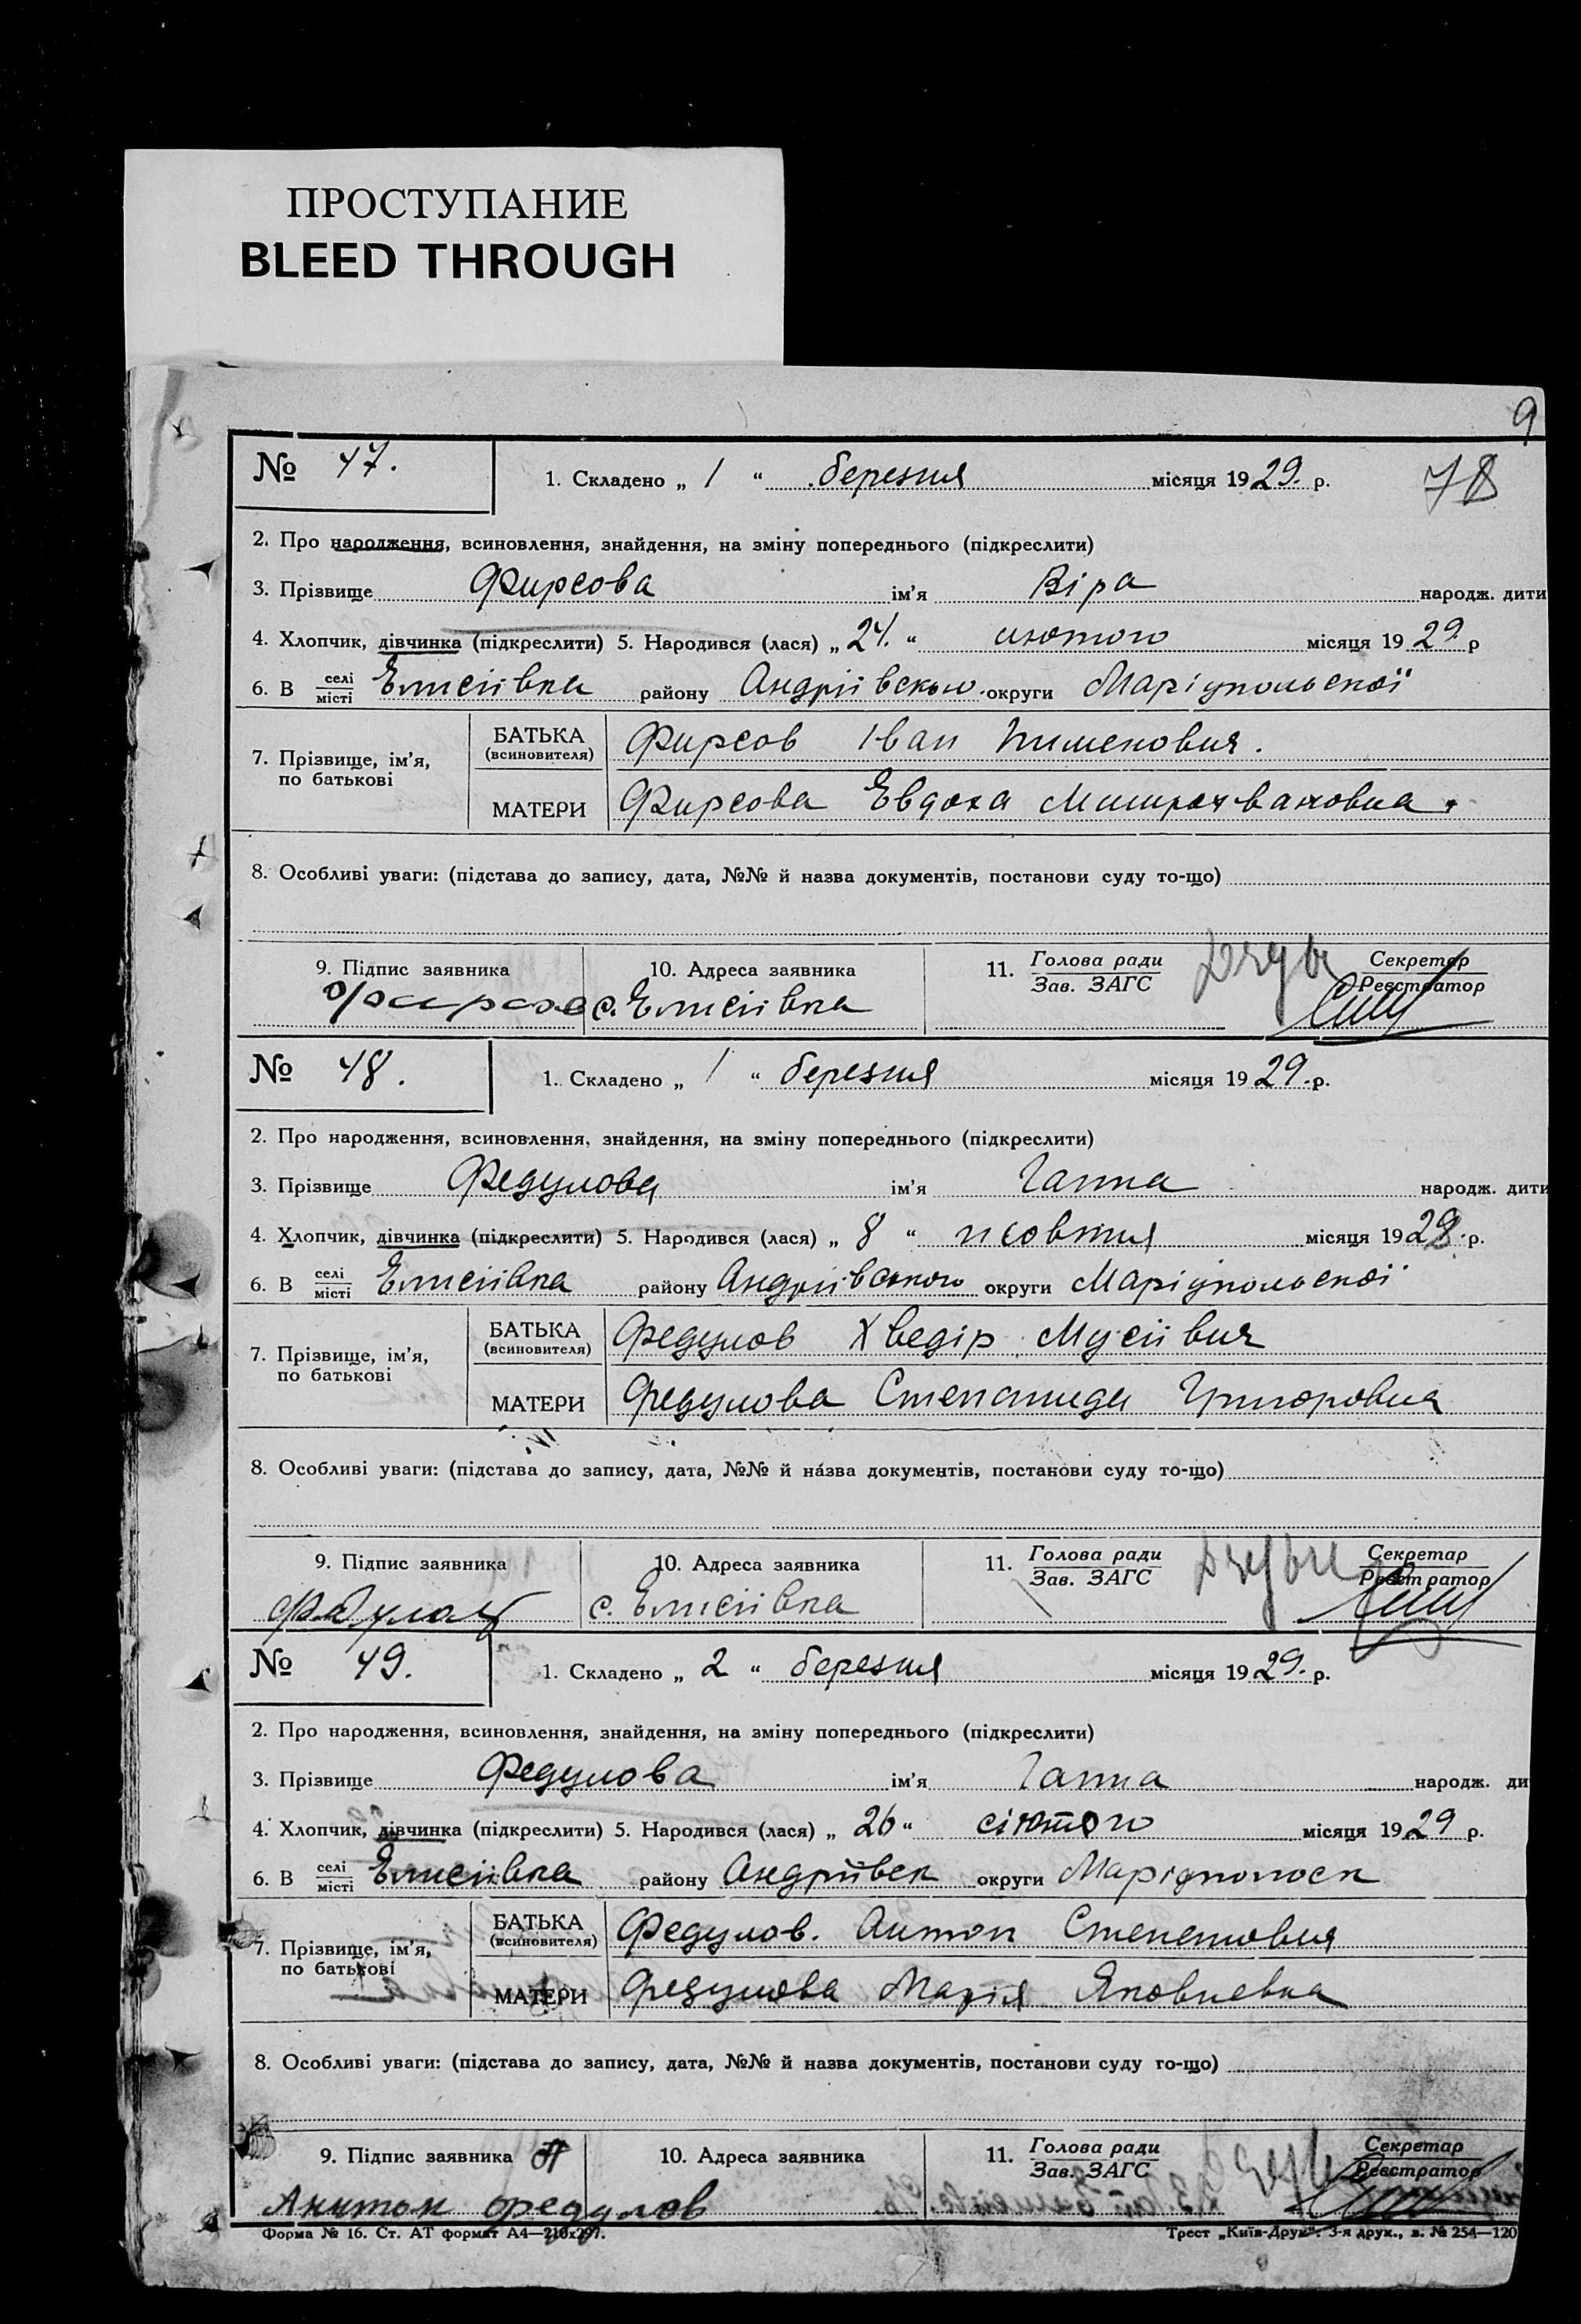 ПРОСТУПАНИЕ
BLEED THROUGH
9
№ 47. 1. Складено „ 1 “ березня місяця 1929. р. 78
2. Про народження, всиновлення, знайдення, на зміну попереднього (підкреслити)
3. Прізвище Фирсова ім’я Віра народж. дити
4. Хлопчик, дівчинка (підкреслити) 5. Народився (лася) „ 24. “ лютого місяця 1929 р
6. В селі місті Елисіівка району Андріівського округи Маріупольскої
7. Прізвище, ім’я, по батькові
БАТЬКА (всиновителя) Фирсов Іван Пименович.
МАТЕРИ Фирсова Евдоха
8. Особливі уваги: (підстава до запису, дата, №№ й назва документів, постанови суду то-що)
9. Підпис заявника 10. Адреса заявника 11. Голова ради Зав. ЗАГС Секретар Реєстратор
с. Елисіівка
№ 48. 1. Складено „ 1 “ березня місяця 1929. р.
2. Про народження, всиновлення, знайдення, на зміну попереднього (підкреслити)
3. Прізвище Федулова ім’я Ганна народж. дити
4. Хлопчик, дівчинка (підкреслити) 5. Народився (лася) „ 8 “ жовтня місяця 1928. р.
6. В селі місті Елисіівка району Андріівського округи Маріупольскої
7. Прізвище, ім’я, по батькові
БАТЬКА (всиновителя) Федулов Хведір Мусіівич
МАТЕРИ Федулова Степанида Григоровна
8. Особливі уваги: (підстава до запису, дата, №№ й назва документів, постанови суду то-що)
9. Підпис заявника 10. Адреса заявника 11. Голова ради Зав. ЗАГС Секретар Реєстратор
с. Елисіівка
№ 49. 1. Складено „ 2 “ березня місяця 1929. р.
2. Про народження, всиновлення, знайдення, на зміну попереднього (підкреслити)
3. Прізвище Федулова ім’я Ганна народж. ди
4. Хлопчик, дівчинка (підкреслити) 5. Народився (лася) „ 26 “ місяця 1929 р.
6. В селі місті Елисіівка району Андріівск округи Маріупольск
7. Прізвище, ім’я, по батькові
БАТЬКА (всиновителя) Федулов. Антон
МАТЕРИ Федулова Марія Яковлевна
8. Особливі уваги: (підстава до запису, дата, №№ й назва документів, постанови суду то-що)
9. Підпис заявника 10. Адреса заявника 11. Голова ради Зав. ЗАГС Секретар Реєстратор
Анитон Федулов
Форма № 16. Ст. АТ формат А4—210x297. Трест „Київ-Друк“. 3-я друк., з. № 254—120